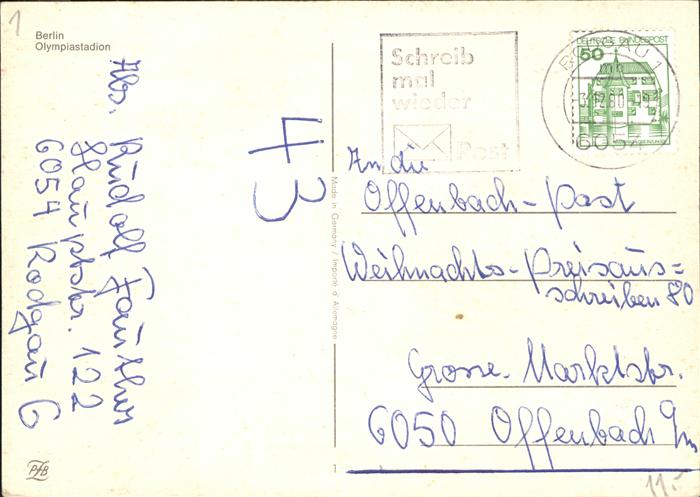 1
Berlin
Olympiastadion
Schreib
mal
wieder
Post
DEUTSCHE BUNDESPOST
50
RODGAU 1
mb
3.12.80
6054
Abs. Rudolf
Hauptstr. 122
6054 Rodgau 6
43
Made in Germany / Importé d'Allemagne
An die
Offenbach-Post
Weihnachts-Preisaus=
schreiben 80
Grosse Marktstr.
6050 Offenbach a/m
PfB
1
11.-